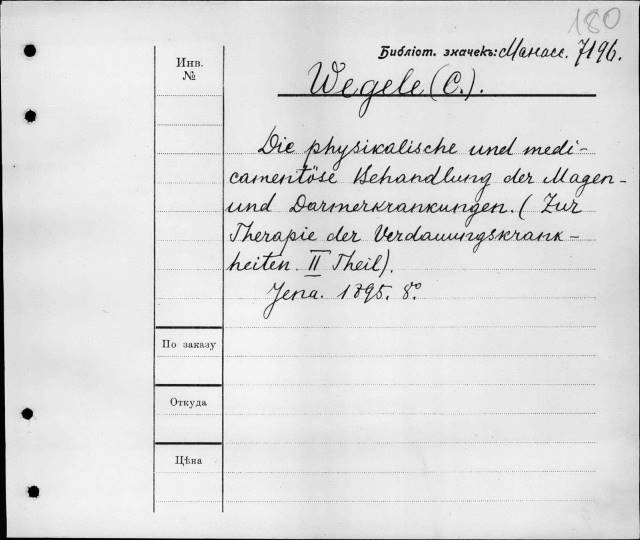 180
Библіот. значекъ: Манасс. 7196.
Инв.
№
Wegele (C.).
Die physikalische und medi-
camentöse Behandlung der Magen-
und Darmerkrankungen. (Zur
Therapie der Verdauungskrank-
heiten. II Theil).
Jena. 1895. 8°.
По заказу
Откуда
Цѣна